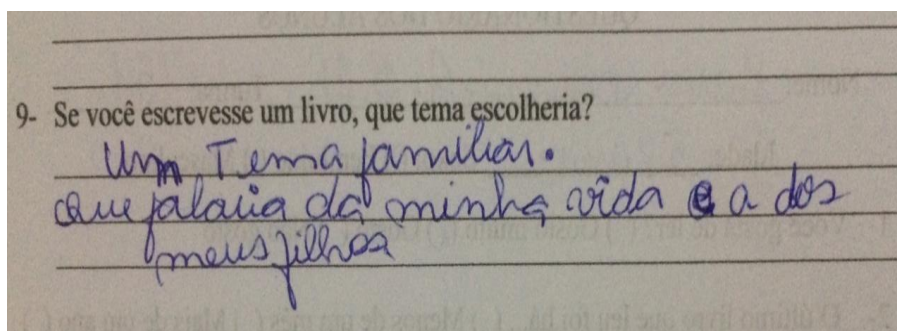 9- Se você escrevesse um livro, que tema escolheria?
Um Tema familiar.
que falaria da minha vida e a dos
meus filhos